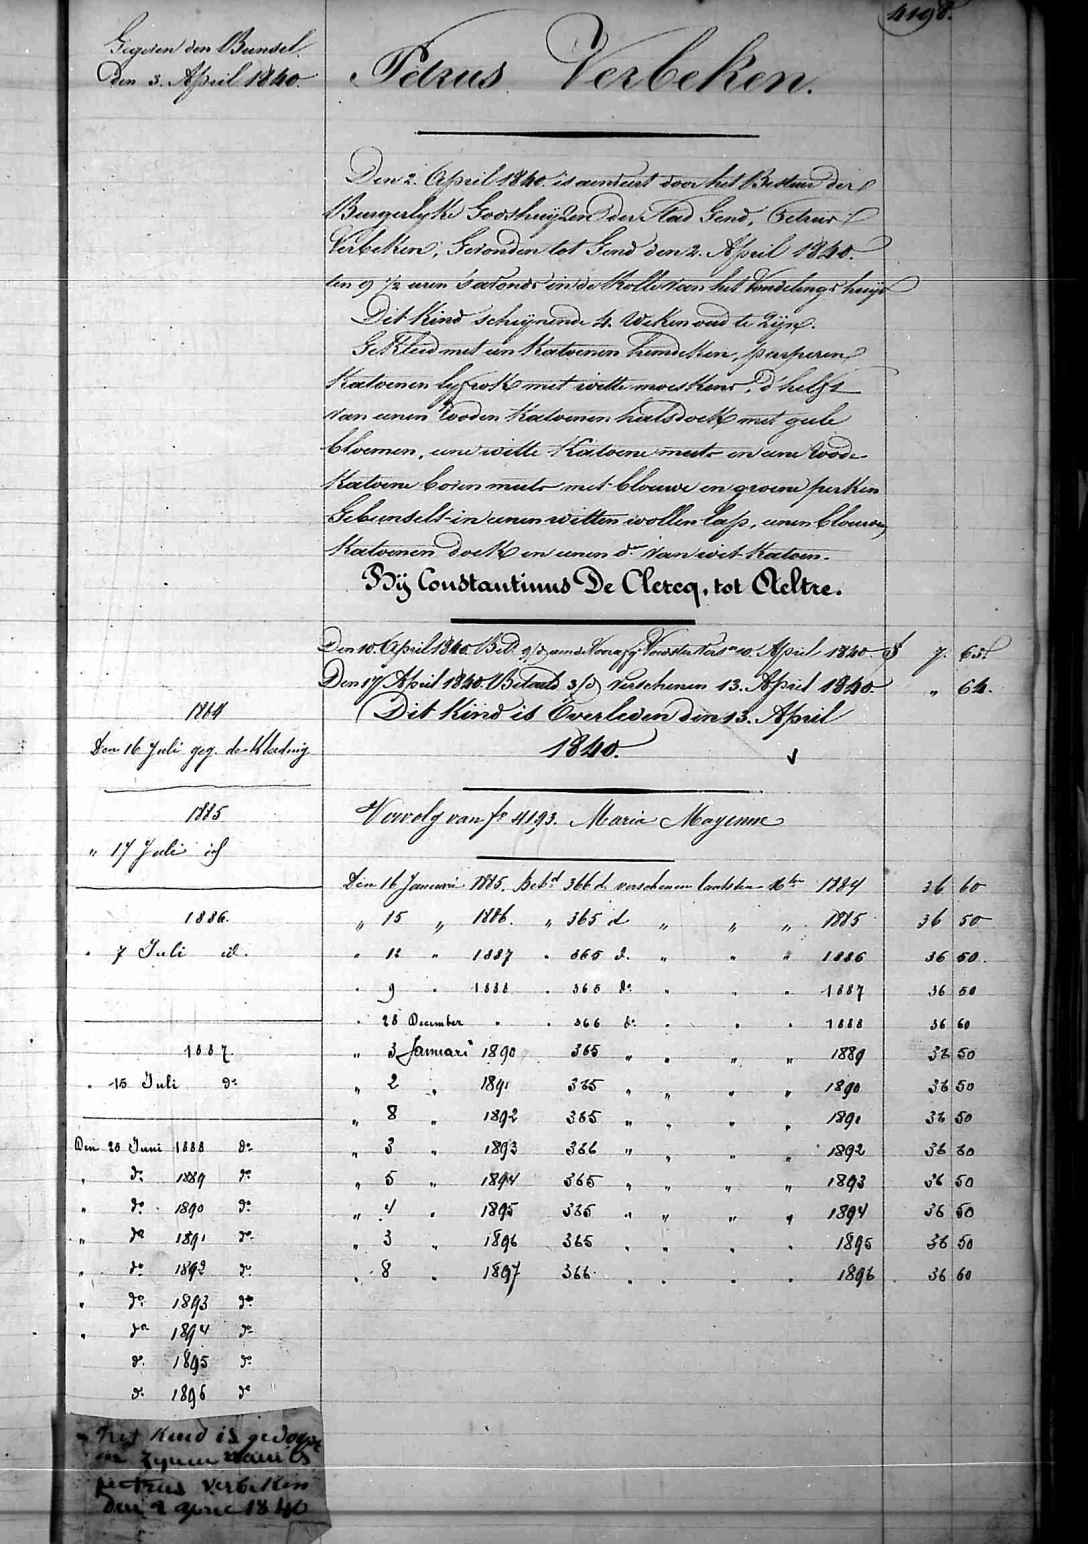 4198.
Gegeven den Bunsel.
den 3. April 1840.
Petrus Verbeken.
Den 2. April 1840. is aenveert door het Bestuur der
Burgerlyke Godshuyzen der Stad Gend, Petrus
Verbeken, Gevonden tot Gend den 2. April 1840.
ten 9 1/2 uren s'avonds in de Rolle van het Vondelings huys
Dit Kind schynende 4. Weken oud te Zyn.
Gekleed met een Katoenen hemdeken, purperen
Katoenen lyfrok met witte moeskens, d'helft
van eenen Rooden Katoenen halsdoek met geele
bloemen, eene witte Katoene muts en eene Roode
Katoene boven muts met blauwe en groene perken
Gebunselt in eenen witten wollen lap, eenen blauwen
Katoenen doek en eenen do. van wit Katoen.
Bij Constantinus De Clercq, tot Aeltre.
Den 10. April 1840. Bet. 9/d aen de Voorzg. Voedster Versn. 10. April 1840. f 7. 65.
Den 17 April 1840. Betaeld 3/d verschenen 13. April 1840. " 64.
Dit Kind is Overleden den 13. April
1840.
1884
Den 16 Juli geg. de Kleeding
1885
" 17 Juli id
1886.
" 7 Juli id.
1887.
" 15 Juli do
Den 20 Juni 1888 do
" do 1889 do
" do 1890 do
" do 1891 do
" do 1892 do
" do 1893 do
" do 1894 do
do 1895 do
do 1896 do
Vervolg van fo. 4193. Maria Mayenne
Den 16 Januari 1885. Betd 366 d verschenen laatsten Xber 1884 36 60
" 15 " 1886. " 365 d " " " 1885 36 50
" 12 " 1887 " 365 d. " " " 1886 36 50.
" 9 " 1888 " 365 do " " " 1887 36 50
" 28 December " " 366 do " " " 1888 36 60
" 3 Januari 1890 365 " " " " 1889 36 50
" 2 " 1891 365 " " " " 1890 36 50
" 8 " 1892 365 " " " " 1891 36 50
" 3 " 1893 366 " " " " 1892 36 60
" 5 " 1894 365 " " " " 1893 36 50
" 4 " 1895 365 " " " " 1894 36 50
" 3 " 1896 365 " " " " 1895 36 50
" 8 " 1897 366 " " " " 1896 36 60
het kind is gedoopt
en zynen naem is
petrus verbeken
den 2 april 1840